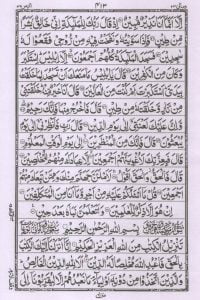 ۴۱۳
اِلَّاۤ اَنَّمَاۤ اَنَا نَذِيْرٌ مُّبِيْنٌ اِذْ قَالَ رَبُّكَ لِلْمَلٰٓئِكَةِ اِنِّيْ خَالِقٌۢ بَشَرًا
مِّنْ طِيْنٍ فَاِذَا سَوَّيْتُهٗ وَنَفَخْتُ فِيْهِ مِنْ رُّوْحِيْ فَقَعُوْا لَهٗ
سٰجِدِيْنَ فَسَجَدَ الْمَلٰٓئِكَةُ كُلُّهُمْ اَجْمَعُوْنَ اِلَّاۤ اِبْلِيْسَ اِسْتَكْبَرَ
وَكَانَ مِنَ الْكٰفِرِيْنَ قَالَ يٰۤاِبْلِيْسُ مَا مَنَعَكَ اَنْ تَسْجُدَ لِمَا
خَلَقْتُ بِيَدَيَّ اَسْتَكْبَرْتَ اَمْ كُنْتَ مِنَ الْعَالِيْنَ قَالَ اَنَا خَيْرٌ
مِّنْهُ خَلَقْتَنِيْ مِنْ نَّارٍ وَّخَلَقْتَهٗ مِنْ طِيْنٍ قَالَ فَاخْرُجْ مِنْهَا فَاِنَّكَ رَجِيْمٌ
وَّاِنَّ عَلَيْكَ لَعْنَتِيْۤ اِلٰى يَوْمِ الدِّيْنِ قَالَ رَبِّ فَاَنْظِرْنِيْۤ اِلٰى يَوْمِ
يُبْعَثُوْنَ قَالَ فَاِنَّكَ مِنَ الْمُنْظَرِيْنَ اِلٰى يَوْمِ الْوَقْتِ الْمَعْلُوْمِ
قَالَ فَبِعِزَّتِكَ لَاُغْوِيَنَّهُمْ اَجْمَعِيْنَ اِلَّا عِبَادَكَ مِنْهُمُ الْمُخْلَصِيْنَ
قَالَ فَالْحَقُّ وَالْحَقَّ اَقُوْلُ لَاَمْلَـَٔنَّ جَهَنَّمَ مِنْكَ وَمِمَّنْ تَبِعَكَ مِنْهُمْ
اَجْمَعِيْنَ قُلْ مَاۤ اَسْـَٔلُكُمْ عَلَيْهِ مِنْ اَجْرٍ وَّمَاۤ اَنَا مِنَ الْمُتَكَلِّفِيْنَ
اِنْ هُوَ اِلَّا ذِكْرٌ لِّلْعٰلَمِيْنَ وَلَتَعْلَمُنَّ نَبَاَهٗ بَعْدَ حِيْنٍ
بِسْمِ اللّٰهِ الرَّحْمٰنِ الرَّحِيْمِ
تَنْزِيْلُ الْكِتٰبِ مِنَ اللّٰهِ الْعَزِيْزِ الْحَكِيْمِ اِنَّاۤ اَنْزَلْنَاۤ اِلَيْكَ الْكِتٰبَ
بِالْحَقِّ فَاعْبُدِ اللّٰهَ مُخْلِصًا لَّهُ الدِّيْنَ اَلَا لِلّٰهِ الدِّيْنُ الْخَالِصُ
وَالَّذِيْنَ اتَّخَذُوْا مِنْ دُوْنِهٖۤ اَوْلِيَآءَ مَا نَعْبُدُهُمْ اِلَّا لِيُقَرِّبُوْنَاۤ اِلَى